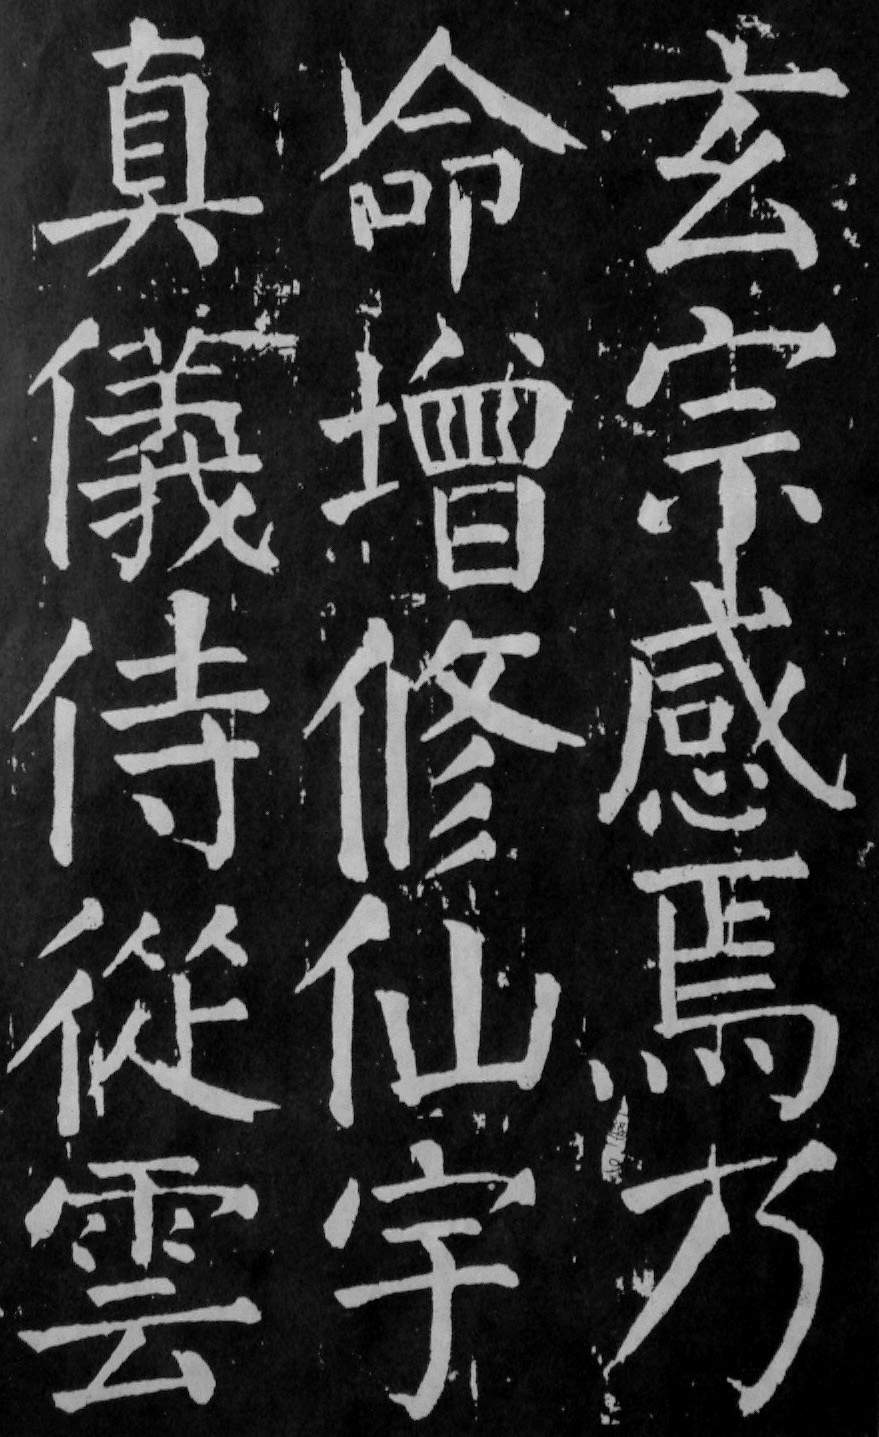 玄宗感焉乃
命增修仙宇
真儀侍從雲